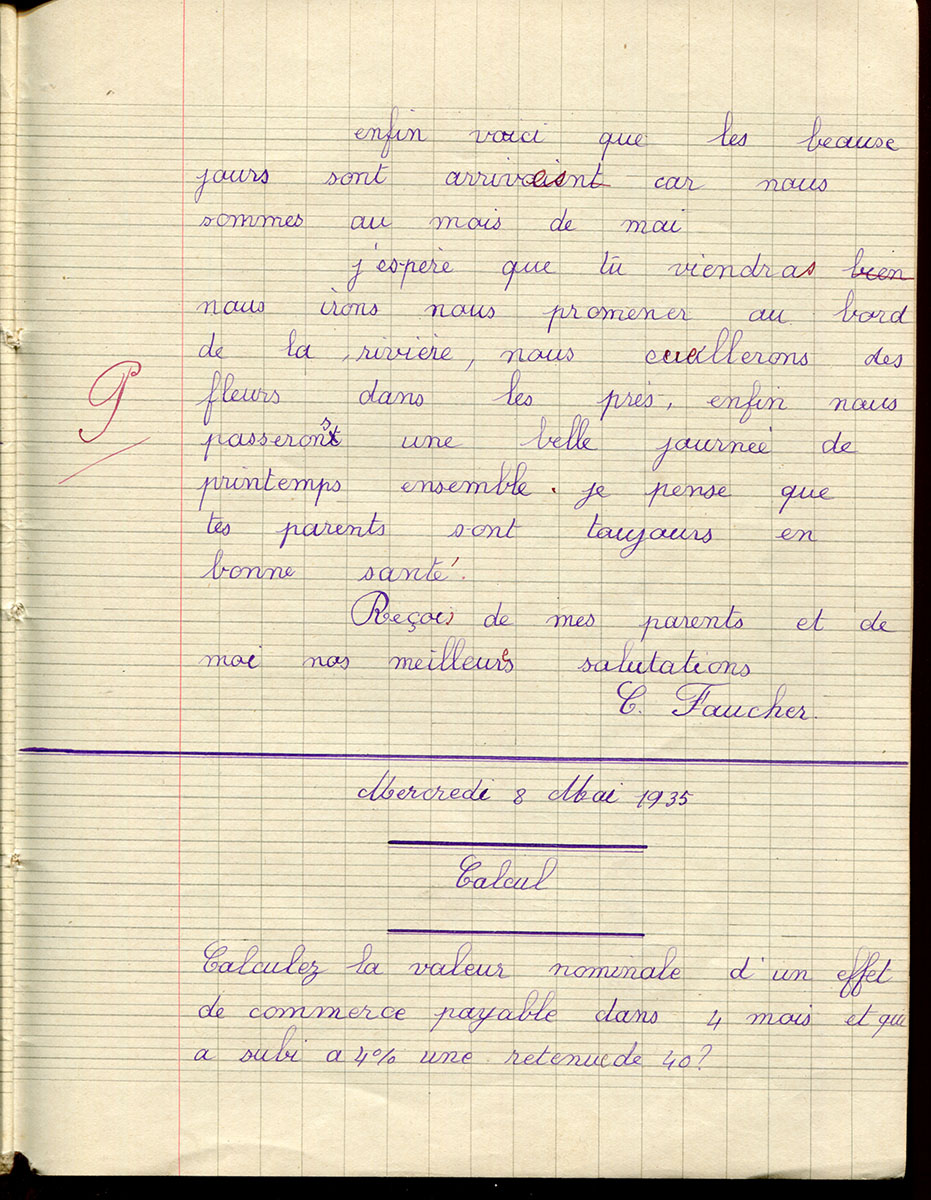 enfin voici que les beause
jours sont arrivaisnt car nous
sommes au mois de mai
j'espère que tu viendras bien
nous irons nous promener au bord
de la rivière, nous cuellerons des
9
fleurs dans les prés, enfin nous
passerons une belle journée de
printemps ensemble. je pense que
tes parents sont toujours en
bonne santé.
Reçois de mes parents et de
moi nos meilleurs salutations
C. Faucher.
Mercredi 8 Mai 1935
Calcul
Calculez la valeur nominale d'un effet
de commerce payable dans 4 mois et que
a subi a 4% une retenue de 40?